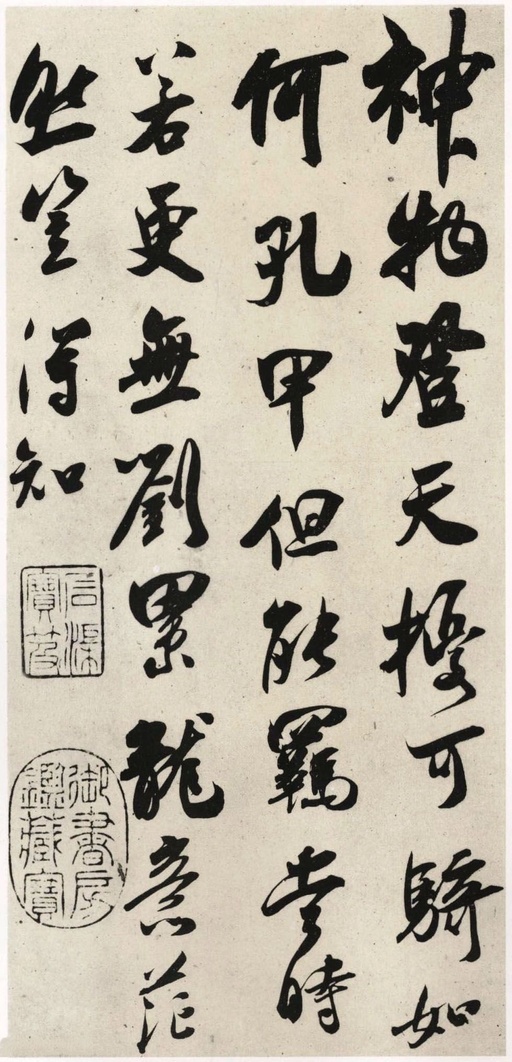 神物登天擾可騎如
何孔甲但能羈當時
若更無劉累龍意茫
然豈得知
石渠寶笈
御書房鑑藏寶